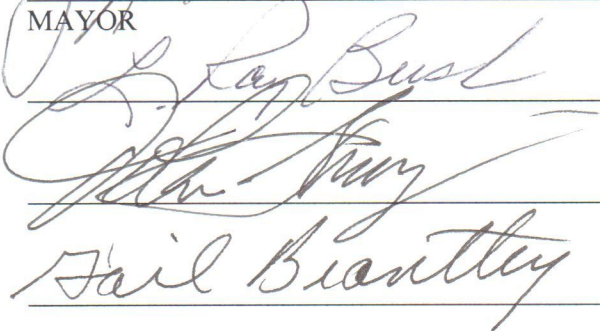 MAYOR
L. Ray Bush
Gail Brantley